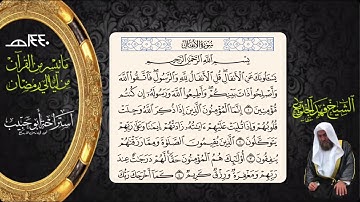 ١٤٤٠هـ
ما تيسر من القرآن
من ليالي رمضان
استراحة أبي حبيب
الشيخ فهد
سورة الأنفال
بسم الله الرحمن الرحيم
يسئلونك عن الأنفال قل الأنفال لله والرسول فاتقوا الله
وأصلحوا ذات بينكم وأطيعوا الله ورسوله إن كنتم
مؤمنين ١ إنما المؤمنون الذين إذا ذكر الله وجلت
قلوبهم وإذا تليت عليهم ءايته زادتهم إيمنا وعلى ربهم
يتوكلون ٢ الذين يقيمون الصلوة ومما رزقنهم
ينفقون ٣ أولئك هم المؤمنون حقا لهم درجت عند
ربهم ومغفرة ورزق كريم ٤ كما أخرجك ربك